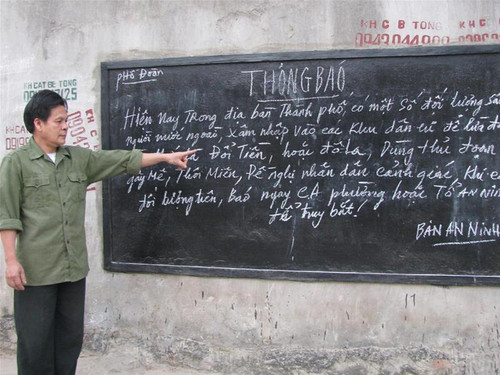 phố Đoàn
THÔNG BÁO
Hiện Nay Trong địa bàn Thành phố, có một số đối tượng
người nước ngoài, xâm nhập vào các Khu dân cư để lừa
Đổi Tiền, hoặc đô la, Dùng thủ đoạn
gây Mê, Thôi Miên, Đề nghị nhân dân cảnh giác, Khi
đối tượng trên, Báo ngay CA phường hoặc Tổ AN NIN
để truy bắt!
BAN AN NINH
KHCAT BE TONG
KH C B TONG
0943044000
KH C
KHCAT